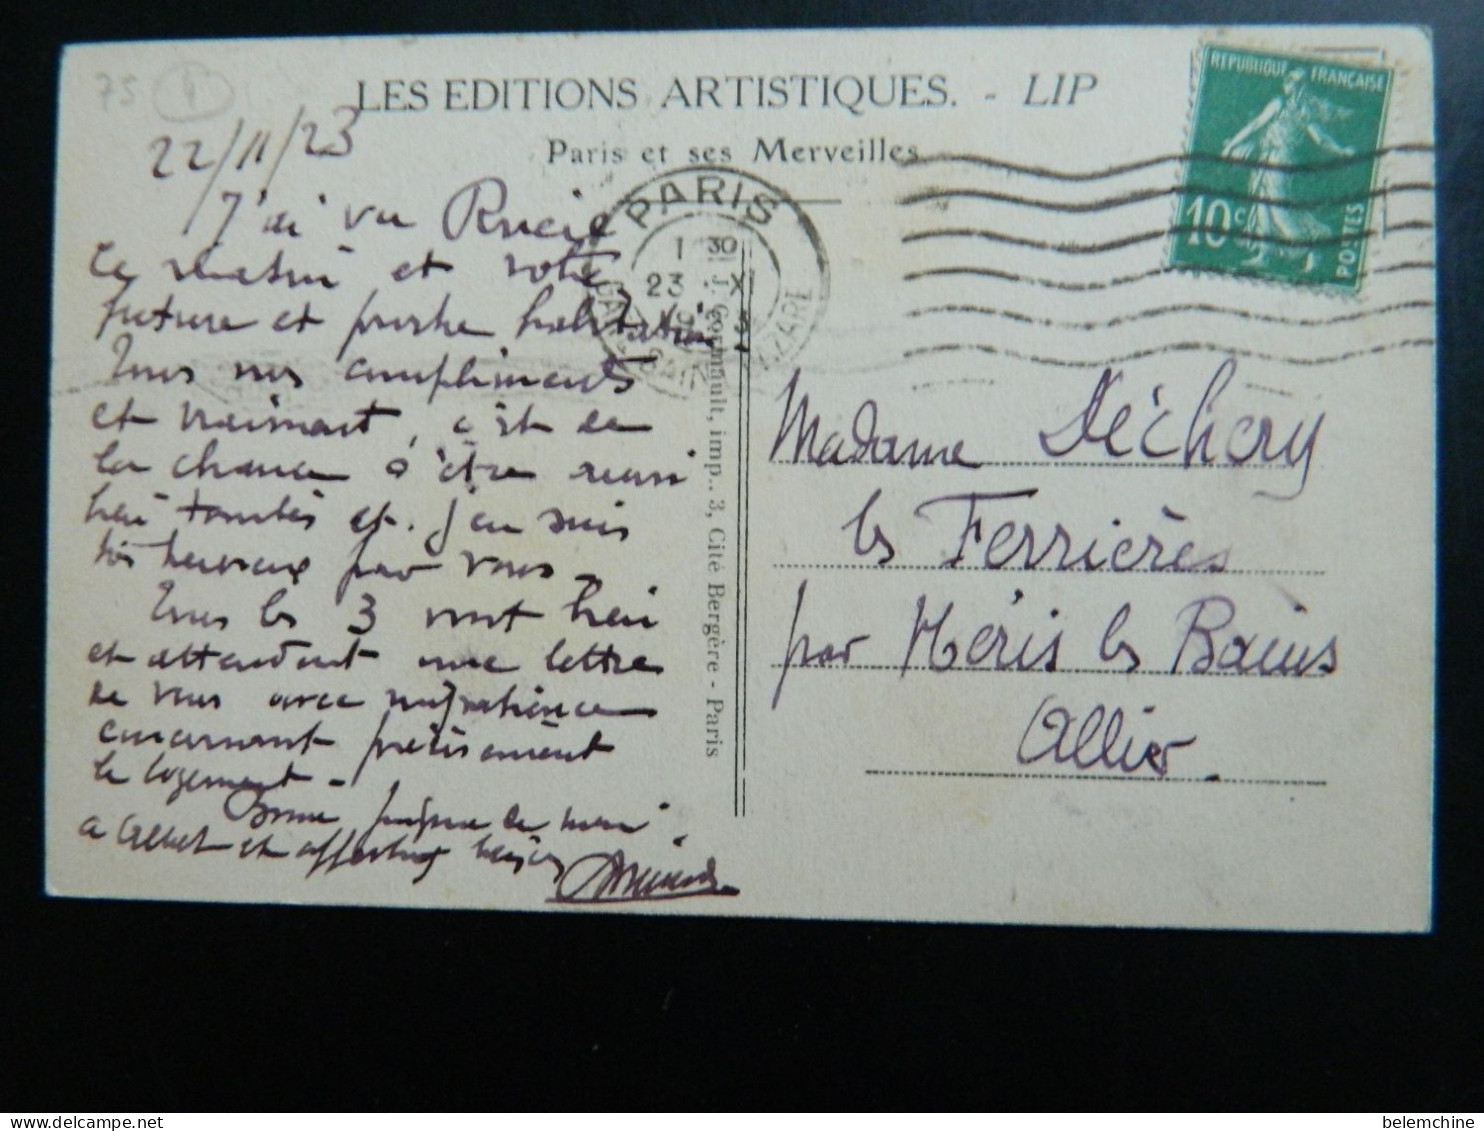 75
LES EDITIONS ARTISTIQUES. - LIP
Paris et ses Merveilles
22/11/23
J'ai vu
ce matin et votre
future et proche habitation
Tous nos compliments
et vraiment, c'est de
la chance d'être aussi
bien tombés et j'en suis
très heureux pour vous
Tous les 3 vont bien
et attendent une lettre
de vous avec impatience
concernant précisément
le logement -
Bonne
a Albert et affectueux baisers
PARIS
1 30
23 XI
GARE SAINT LAZARE
J. Cormault, imp., 3, Cité Bergère - Paris
REPUBLIQUE FRANÇAISE
10c
POSTES
Madame Déchery
les Ferrières
par Néris les Bains
Allier.
belemchine